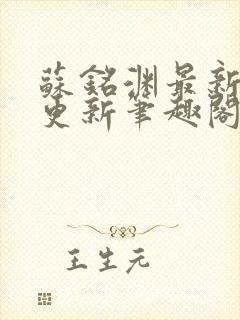 蘇銘淵最新
更新筆趣閣
王生元